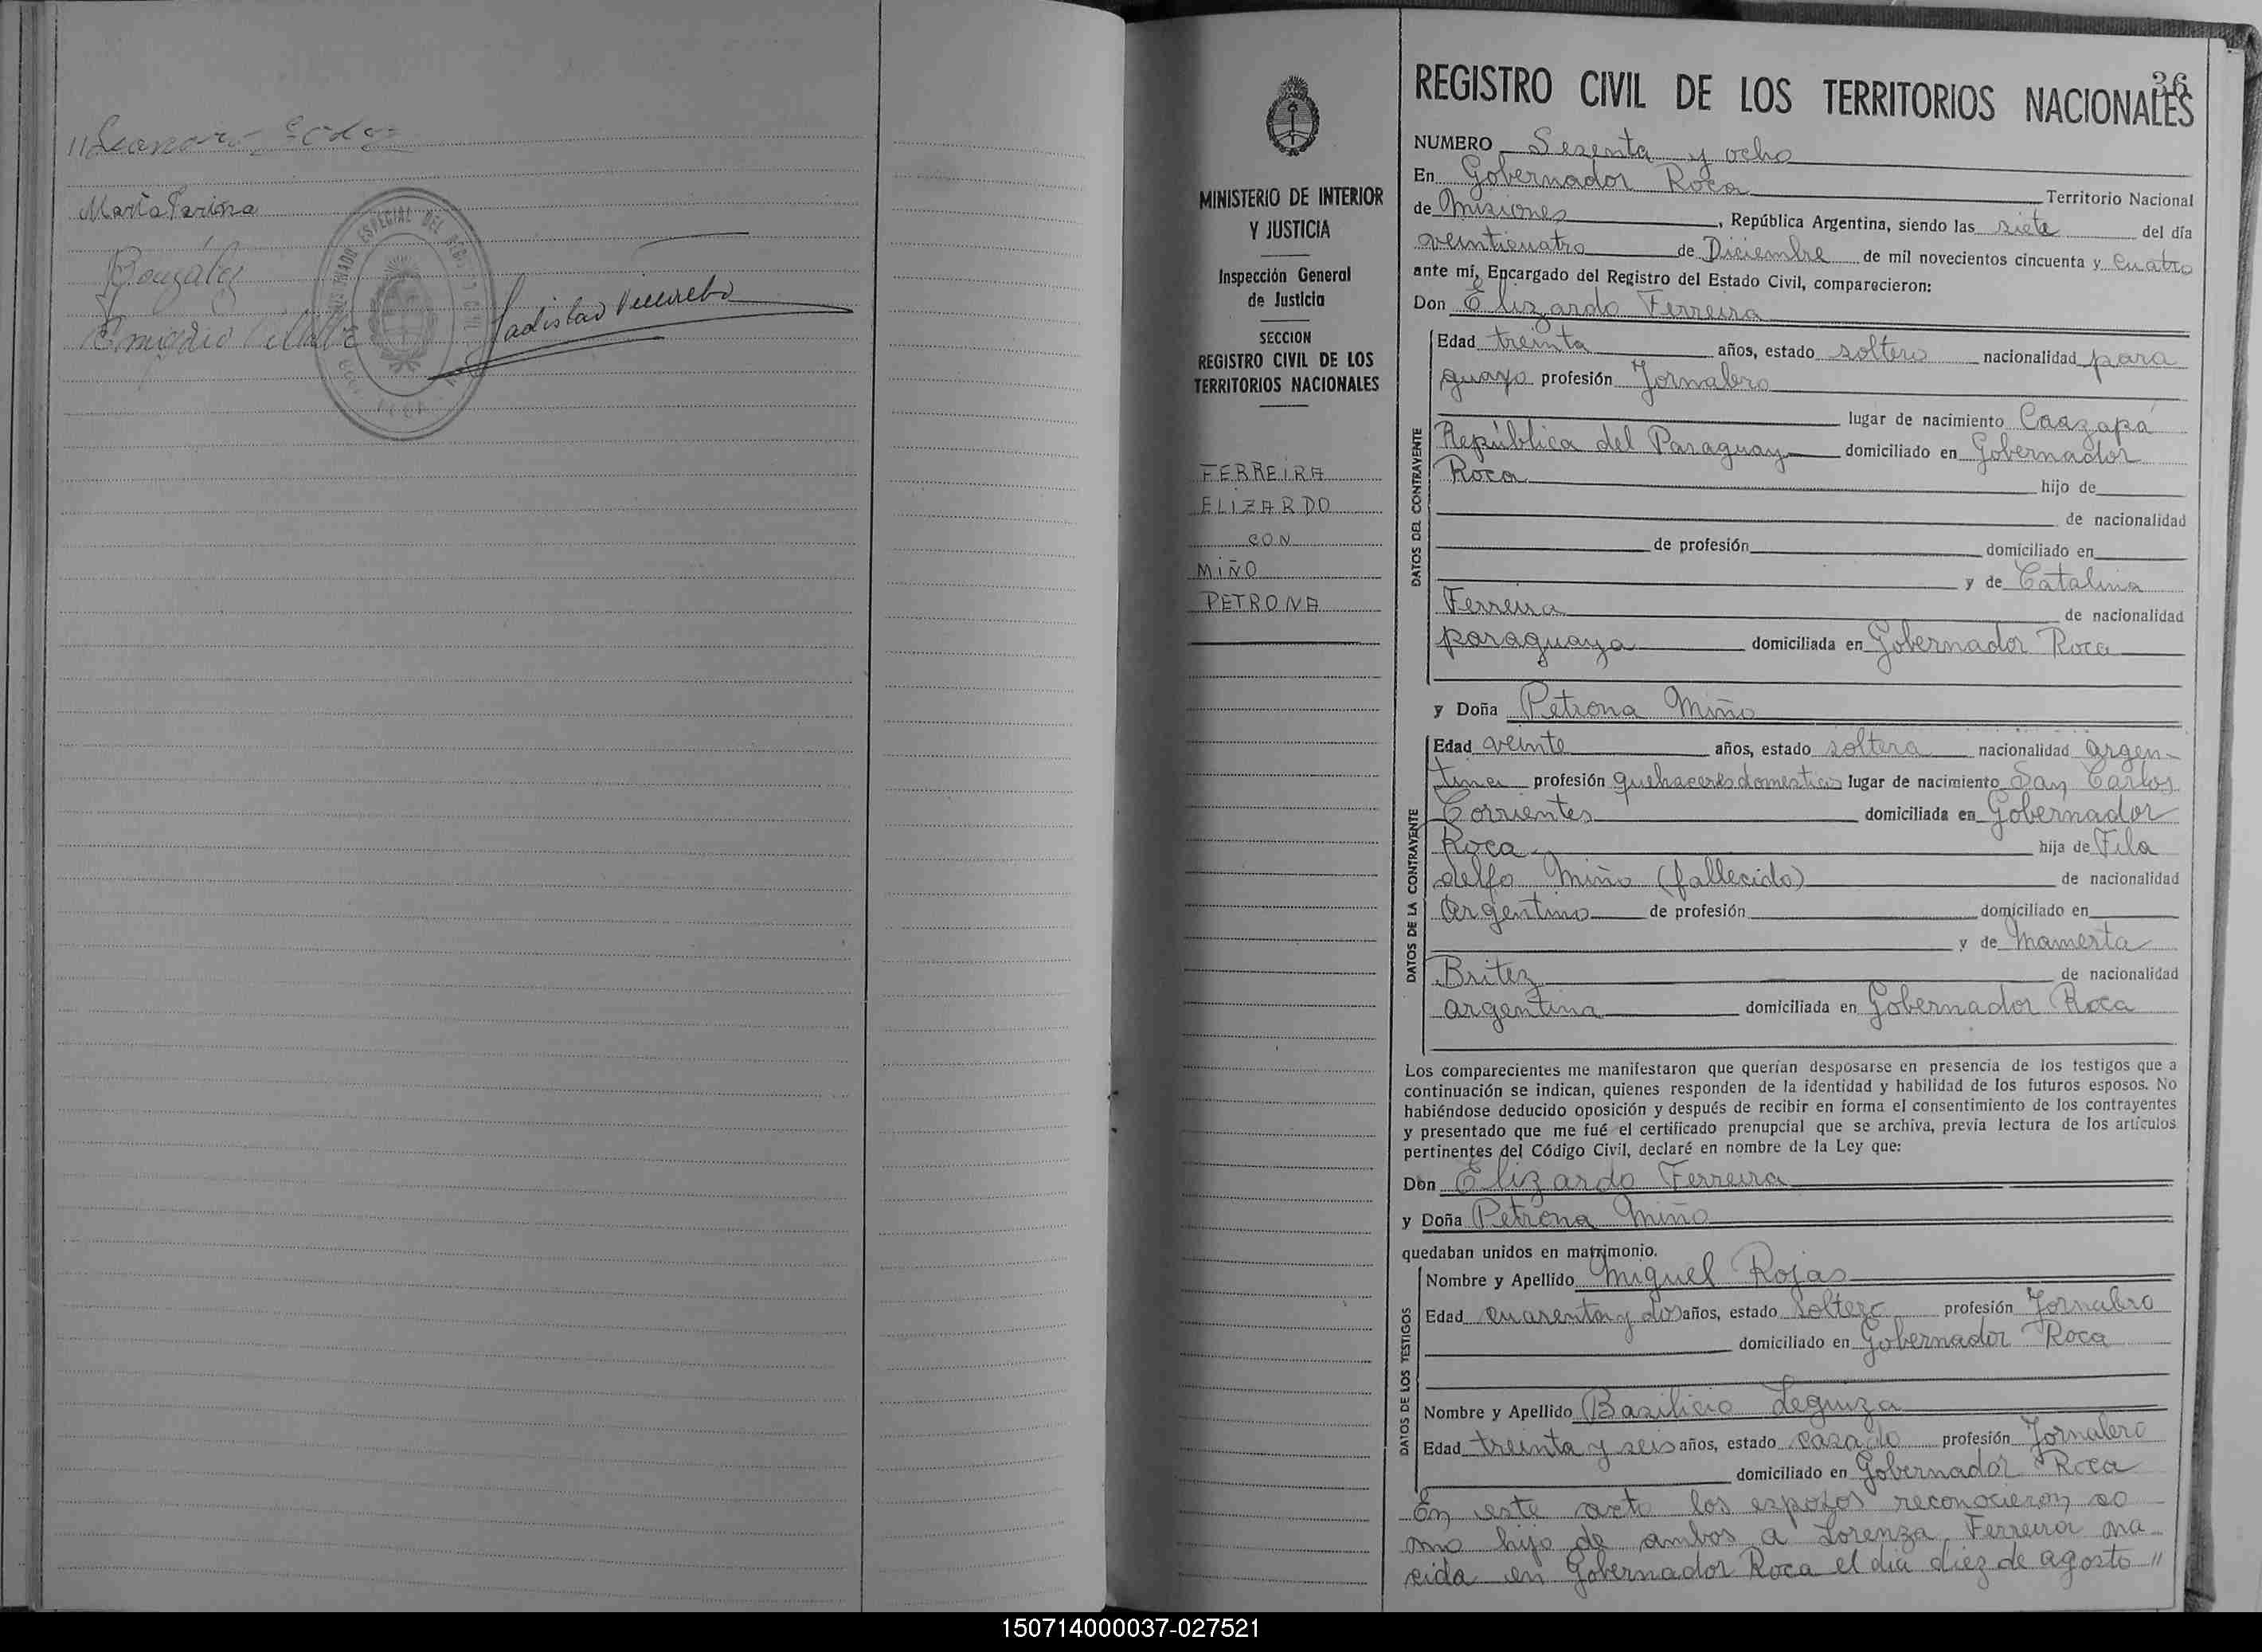 María Farina
González
Emigdio Villalba
Ladislao
36
MINISTERIO DE INTERIOR
Y JUSTICIA
Inspección General
de Justicia
SECCION
REGISTRO CIVIL DE LOS
TERRITORIOS NACIONALES
FERREIRA
ELIZARDO
CON
MIÑO
PETRONA
REGISTRO CIVIL DE LOS TERRITORIOS NACIONALES
NUMERO Sesenta y ocho
En Gobernador Roca Territorio Nacional
de Misiones, República Argentina, siendo las siete del día
veinticuatro de Diciembre de mil novecientos cincuenta y cuatro
ante mí, Encargado del Registro del Estado Civil, comparecieron:
Don Elizardo Ferreira
DATOS DEL CONTRAYENTE
Edad treinta años, estado soltero nacionalidad para
guayo profesión Jornalero
lugar de nacimiento Caazapá
República del Paraguay domiciliado en Gobernador
Roca hijo de
de nacionalidad
de profesión domiciliado en
y de Catalina
Ferreira de nacionalidad
paraguaya domiciliada en Gobernador Roca
y Doña Petrona Miño
DATOS DE LA CONTRAYENTE
Edad veinte años, estado soltera nacionalidad argen-
tina profesión quehaceres domesticos lugar de nacimiento San Carlos
Corrientes domiciliada en Gobernador
Roca hija de Fila
delfo Miño (fallecido) de nacionalidad
Argentino de profesión domiciliado en
y de Mamerta
Britez de nacionalidad
argentina domiciliada en Gobernador Roca
Los comparecientes me manifestaron que querían desposarse en presencia de los testigos que a
continuación se indican, quienes responden de la identidad y habilidad de los futuros esposos. No
habiéndose deducido oposición y después de recibir en forma el consentimiento de los contrayentes
y presentado que me fué el certificado prenupcial que se archiva, previa lectura de los artículos
pertinentes del Código Civil, declaré en nombre de la Ley que:
Don Elizardo Ferreira
y Doña Petrona Miño
quedaban unidos en matrimonio.
DATOS DE LOS TESTIGOS
Nombre y Apellido Miguel Rojas
Edad cuarenta y dos años, estado soltero profesión Jornalero
domiciliado en Gobernador Roca
Nombre y Apellido Basilicio Leguiza
Edad treinta y seis años, estado casado profesión Jornalero
domiciliado en Gobernador Roca
En este acto los esposos reconocieron co
mo hijo de ambos a Lorenza Ferreira na
cida en Gobernador Roca el día diez de agosto //
150714000037-027521